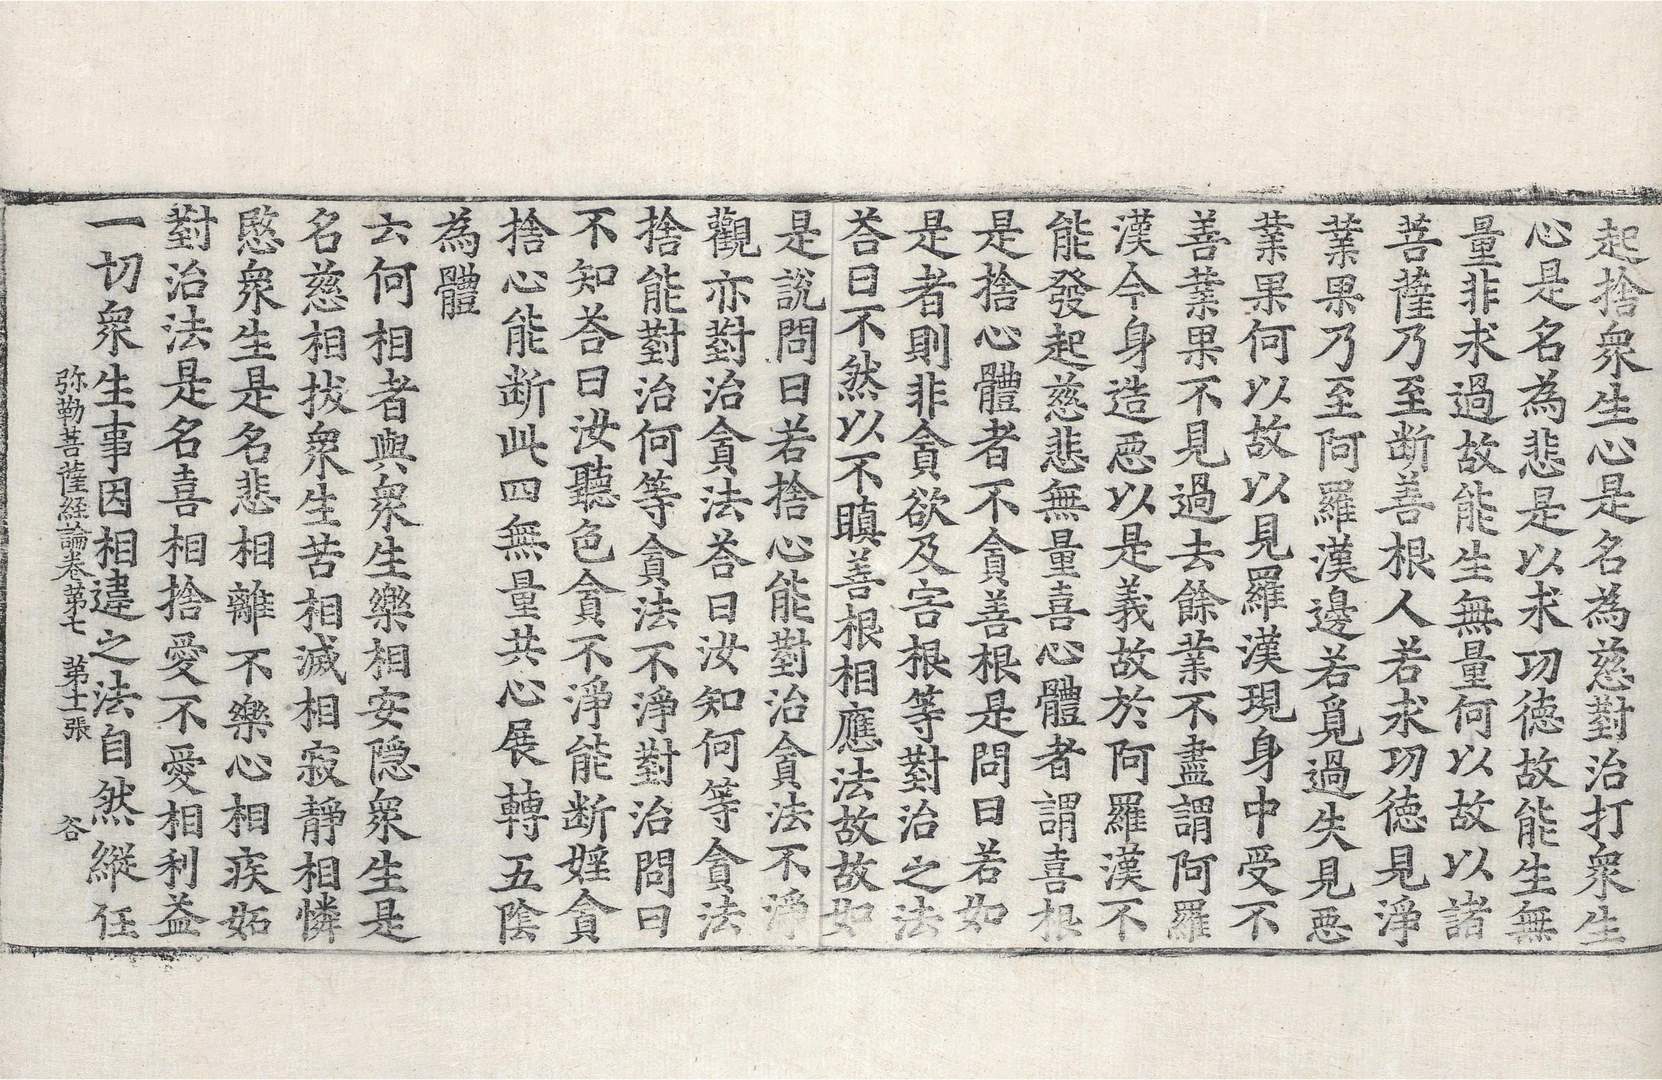 起捨衆生心是名為慈對治打衆生
心是名為悲是以求㓛德故能生無
量非求過故能生無量何以故以諸
菩薩乃至断善根人若求㓛德見淨
業果乃至阿羅漢邊若覓過失見惡
業果何以故以見羅漢現身中受不
善業果不見過去餘業不盡謂阿羅
漢今身造惡以是義故於阿羅漢不
能發起慈悲無量喜心體者謂喜根
是捨心體者不貪善根是問曰若如
是者則非貪欲及害根等對治之法
荅曰不然以不瞋善根相應法故故如
是說問曰若捨心能對治貪法不淨
觀亦對治貪法荅曰汝知何等貪法
捨能對治何等貪法不淨對治問曰
不知荅曰汝聽色貪不淨能断婬貪
捨心能断此四無量共心展轉五陰
為體
云何相者與衆生樂相安隱衆生是
名慈相拔衆生苦相滅相寂靜相憐
愍衆生是名悲相離不樂心相疾妬
對治法是名喜相捨愛不愛相利益
一切衆生事因相違之法自然縱任
弥勒菩薩経論卷第七　第十一張　荅